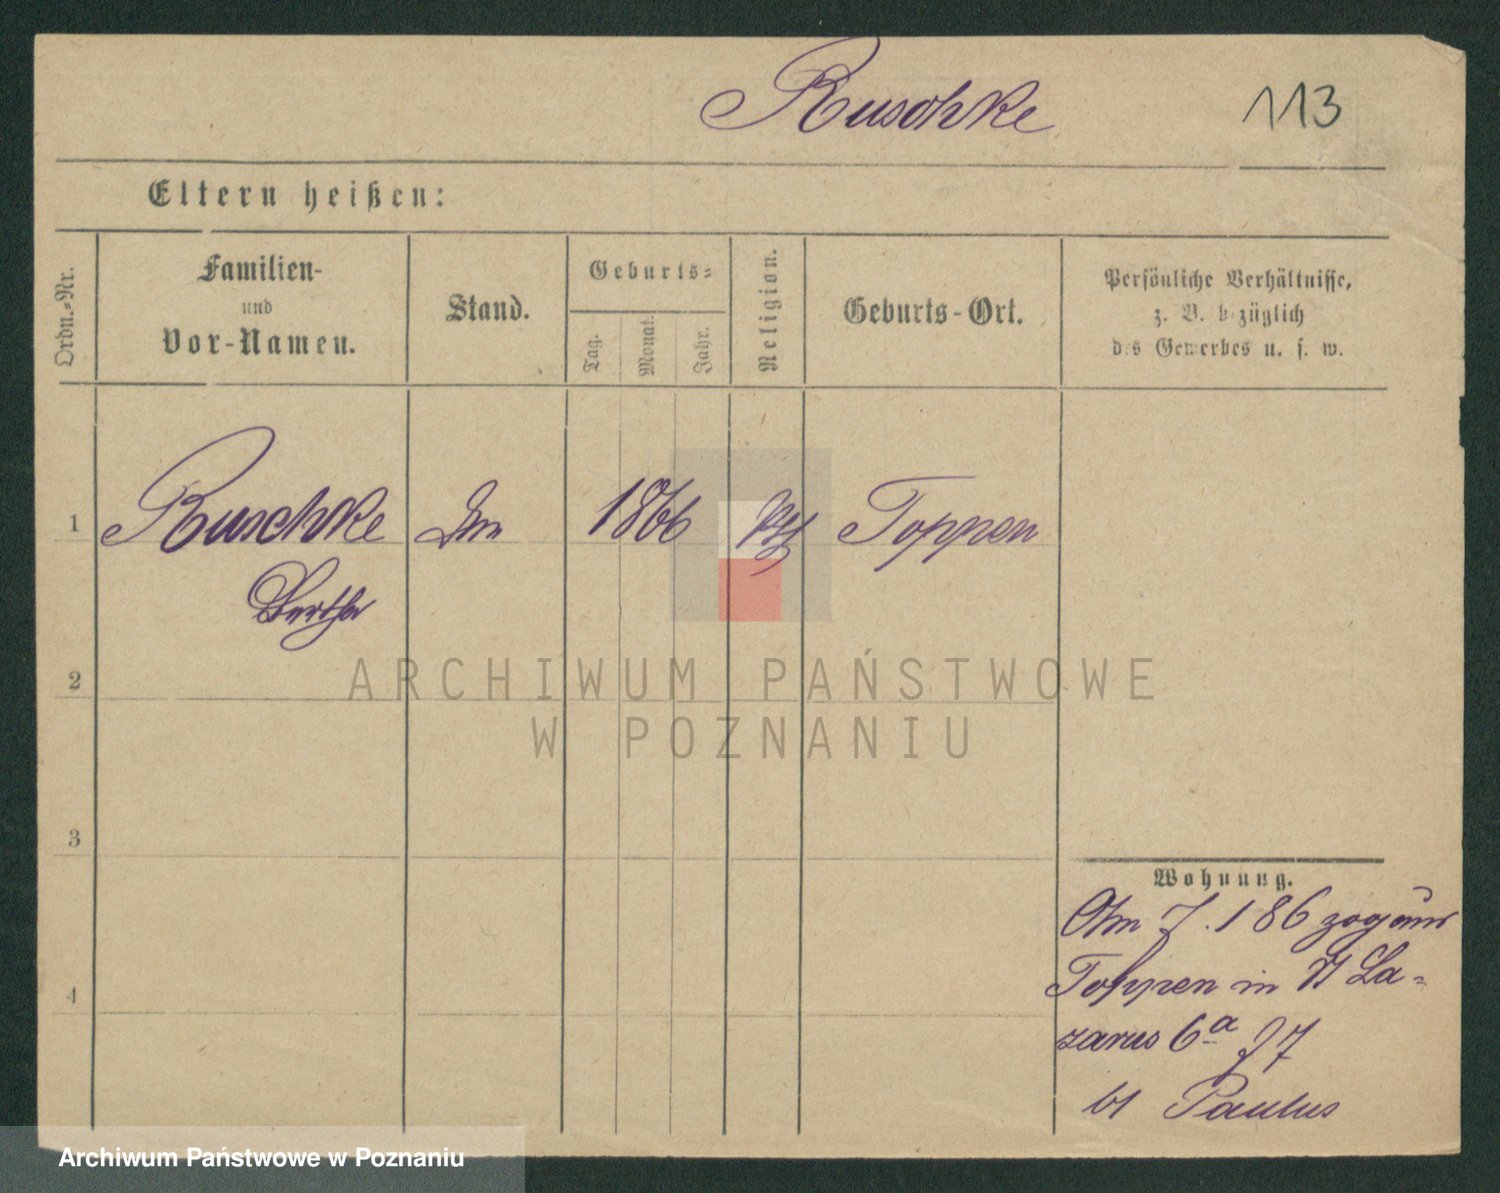 Ruschke 113
Eltern heißen:
Ordn.-Nr.
Familien-
und
Vor-Namen.
Stand.
Geburts-
Tag.
Monat.
Jahr.
Religion.
Geburts-Ort.
Persönliche Verhältnisse,
z. B. bezüglich
des Gewerbes u. s. w.
1 Ruschke 1866 Toppen
Bertha
2
ARCHIWUM PAŃSTWOWE
W POZNANIU
3
4
Wohnung.
Am 7. 1 86 zog aus
Toppen in St La-
zarus 6a
bt Paulus
Archiwum Państwowe w Poznaniu